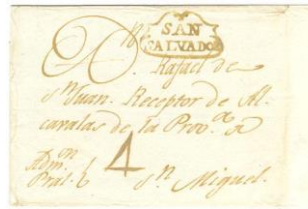 SAN
SALVADOR
Dn. Rafael de
Sn. Juan. Receptor de Al
cavalas de la Prova. de
Admon
Pral. 4 Sn. Miguel.